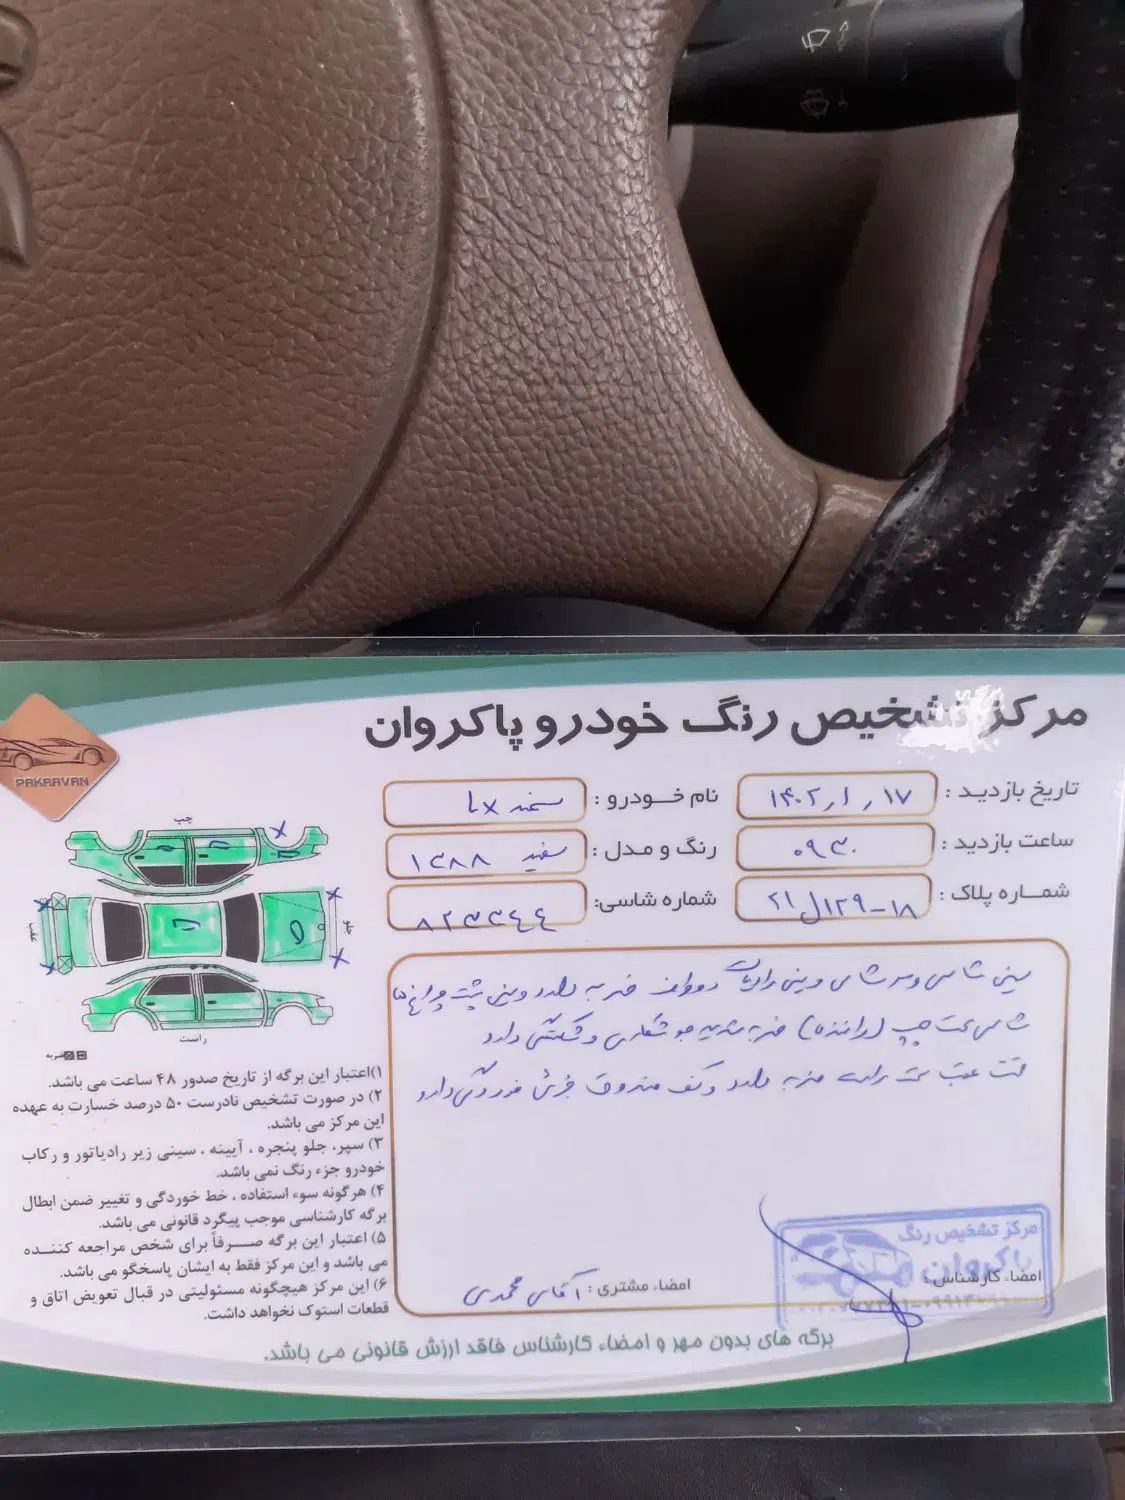 مرکز تشخیص رنگ خودرو پاکروان
PAKRAVAN
تاریخ بازدید : ۱۴۰۲٫۱٫۱۷
نام خودرو : سمند Lx
ساعت بازدید : ۰۹۳۰
رنگ و مدل : سفید ۱۳۸۸
شماره پلاک : ۱۸-۱۲۹ل۲۱
شماره شاسی: ۸۲۳۳۴۴
چپ
جلو
عقب
راست
ضربه
سینی شاسی و سر شاسی و سینی رادیات دوطرف ضربه دارد و سینی پشت چراغ ها
شاسی سمت چپ (راننده) ضربه شدید جوشکاری و شکستگی دارد
قسمت عقب سمت راست ضربه دارد و کف صندوق فرش خوردگی دارد
۱)اعتبار این برگه از تاریخ صدور ۴۸ ساعت می باشد.
۲) در صورت تشخیص نادرست ۵۰ درصد خسارت به عهده
این مرکز می باشد.
۳) سپر، جلو پنجره ، آیینه ، سینی زیر رادیاتور و رکاب
خودرو جزء رنگ نمی باشد.
۴) هرگونه سوء استفاده ، خط خوردگی و تغییر ضمن ابطال
برگه کارشناسی موجب پیگرد قانونی می باشد.
۵) اعتبار این برگه صرفاً برای شخص مراجعه کننده
می باشد و این مرکز فقط به ایشان پاسخگو می باشد.
۶) این مرکز هیچگونه مسئولیتی در قبال تعویض اتاق و
قطعات استوک نخواهد داشت.
مرکز تشخیص رنگ
پاکروان
امضاء کارشناس :
امضاء مشتری : آقای محمدی
برگه های بدون مهر و امضاء کارشناس فاقد ارزش قانونی می باشد.